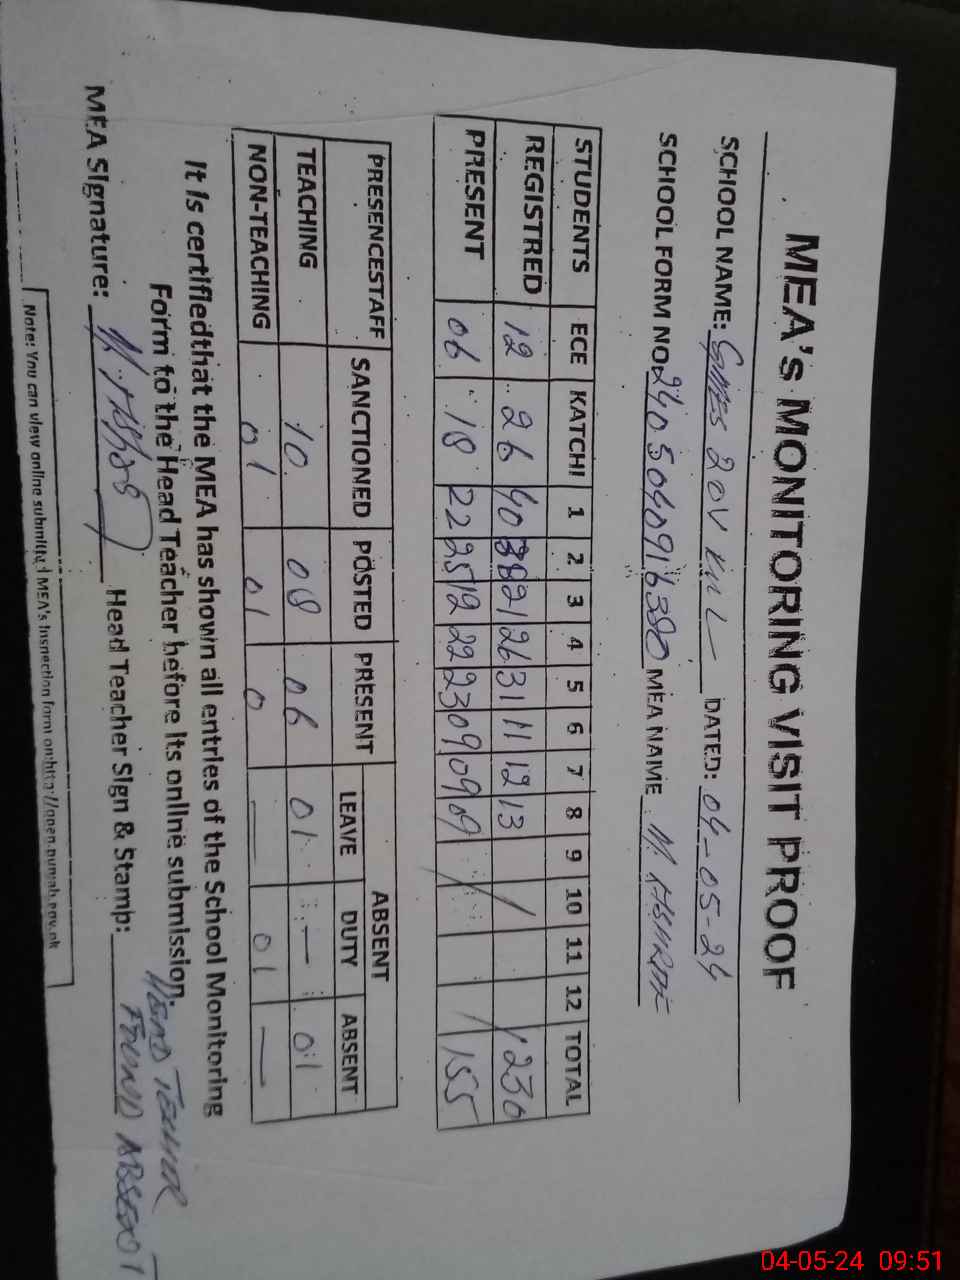 MEA's MONITORING VISIT PROOF
SCHOOL NAME: 20V DATED: 04-05-24
SCHOOL FORM NO: MEA NAME M.
STUDENTS ECE KATCHI 1 2 3 4 5 6 7 8 9 10 11 12 TOTAL
REGISTRED 12 26 40 38 21 26 31 11 12 13 230
PRESENT 06 18 22 25 12 22 23 09 09 09 155
PRESENCESTAFF SANCTIONED POSTED PRESENT ABSENT
LEAVE DUTY ABSENT
TEACHING 10 08 06 01 — 01
NON-TEACHING 01 01 0 — 01 —
It is certifiedthat the MEA has shown all entries of the School Monitoring
Form to the Head Teacher before its online submission.
MEA Signature: Head Teacher Sign & Stamp: HEAD TEACHER
FOUND ABSENT
Note: You can view online submitted MEA's Inspection form on:http://open.punjab.gov.pk
04-05-24 09:51